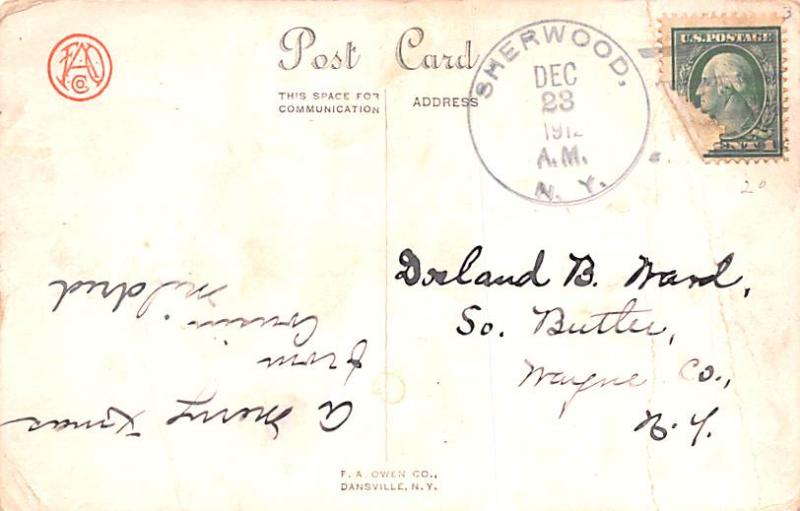 FAO
Co
Post Card
THIS SPACE FOR
COMMUNICATION
ADDRESS
SHERWOOD,
DEC
23
1912
A.M.
N. Y.
U.S. POSTAGE
3
20
A Merry Xmas
from
Cousin.
Mildred
Dorland B. Ward,
So. Butler,
Wayne Co.,
N.Y.
F. A. OWEN CO.,
DANSVILLE, N.Y.